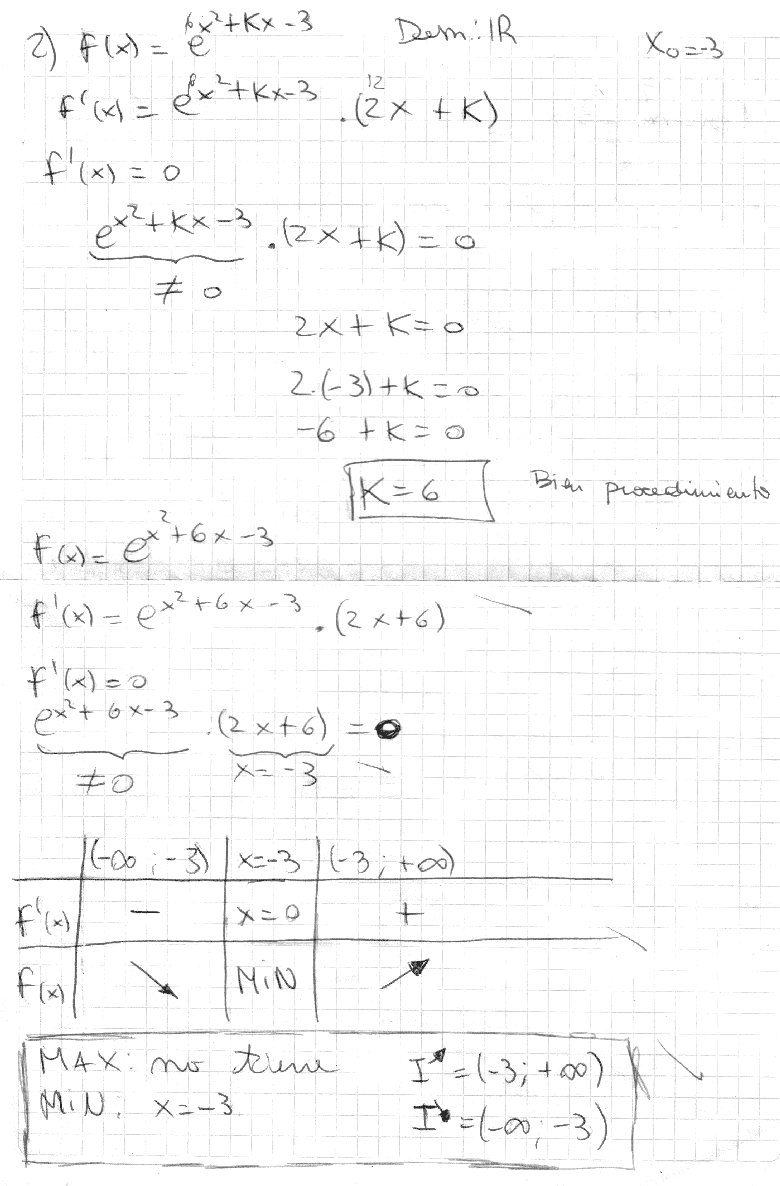 2) f(x) = e^{6x²+Kx-3} Dom: IR x₀=-3
f'(x) = e^{6x²+Kx-3} . (2x + K) 12
f'(x) = 0
e^{x²+Kx-3} . (2x+K) = 0
≠ 0
2x + K = 0
2.(-3)+K = 0
-6 +K = 0
K = 6 Bien procedimiento
f(x) = e^{x²+6x-3}
f'(x) = e^{x²+6x-3} . (2x+6)
f'(x) = 0
e^{x²+6x-3} . (2x+6) = 0
≠0 x=-3
(-∞; -3) x=-3 (-3; +∞)
f'(x) - x=0 + 
f(x) ↘ MiN ↗
MAX: no tiene I↗ = (-3; +∞)
MiN: x=-3 I↘ = (-∞; -3)